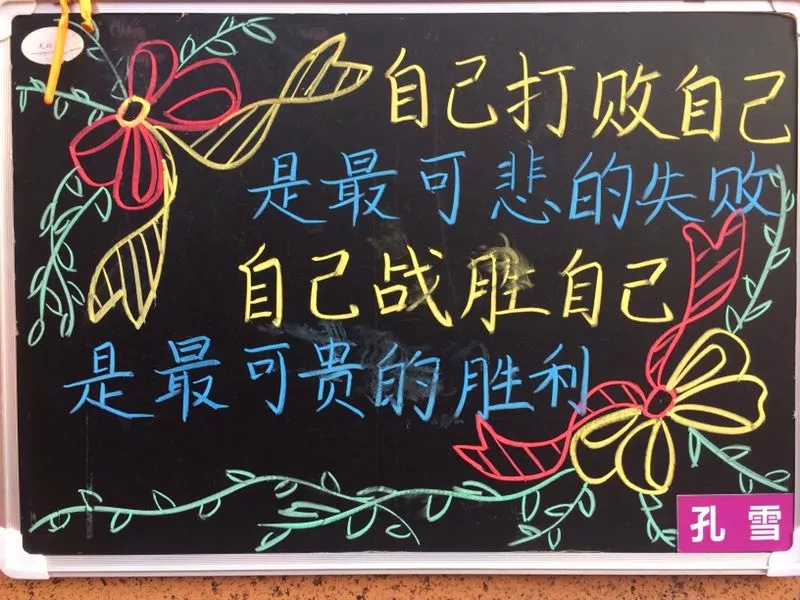 自己打败自己
是最可悲的失败
自己战胜自己
是最可贵的胜利
孔雪